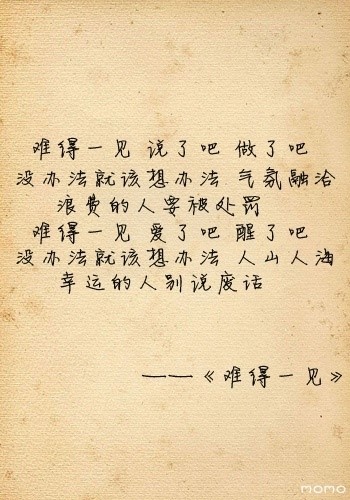 难得一见 说了吧 做了吧
没办法就该想办法 气氛融洽
浪费的人要被处罚
难得一见 爱了吧 醒了吧
没办法就该想办法 人山人海
幸运的人别说废话
——《难得一见》
momo